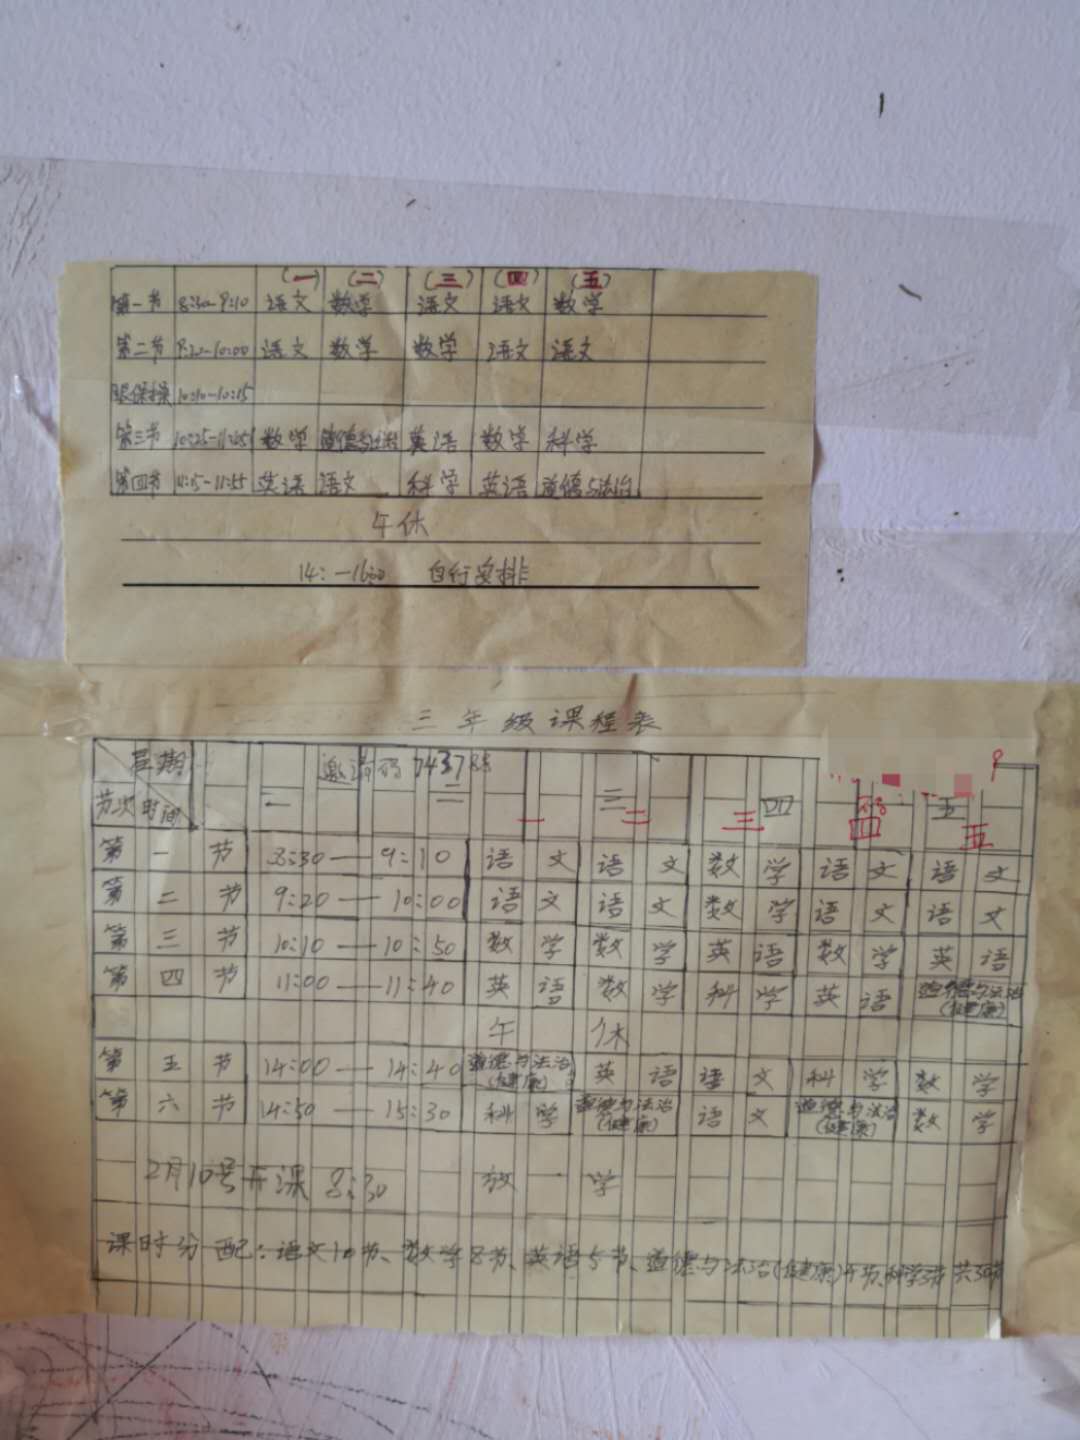 (一) (二) (三) (四) (五)
第一节 8:30-9:10 语文 数学 语文 语文 数学
第二节 9:20-10:00 语文 数学 数学 语文 语文
眼保操 10:10-10:15
第三节 10:25-11:05 数学 道德与法治 英语 数学 科学
第四节 11:15-11:55 英语 语文 科学 英语 道德与法治
午休
14: -16:00 自行安排
三年级课程表
星期 邀请码743788
节次 时间 一 二 三 四 五
一 二 三 四 五
第一节 8:30—9:10 语文 语文 数学 语文 语文
第二节 9:20—10:00 语文 语文 数学 语文 语文
第三节 10:10—10:50 数学 数学 英语 数学 英语
第四节 11:00—11:40 英语 数学 科学 英语 道德与法治(健康)
午休
第五节 14:00—14:40 道德与法治(健康) 英语 语文 科学 数学
第六节 14:50—15:30 科学 道德与法治(健康) 语文 道德与法治(健康) 数学
2月10号开课 8:30 放学
课时分配:语文10节、数学8节、英语5节、道德与法治(健康)4节、科学3节 共30节